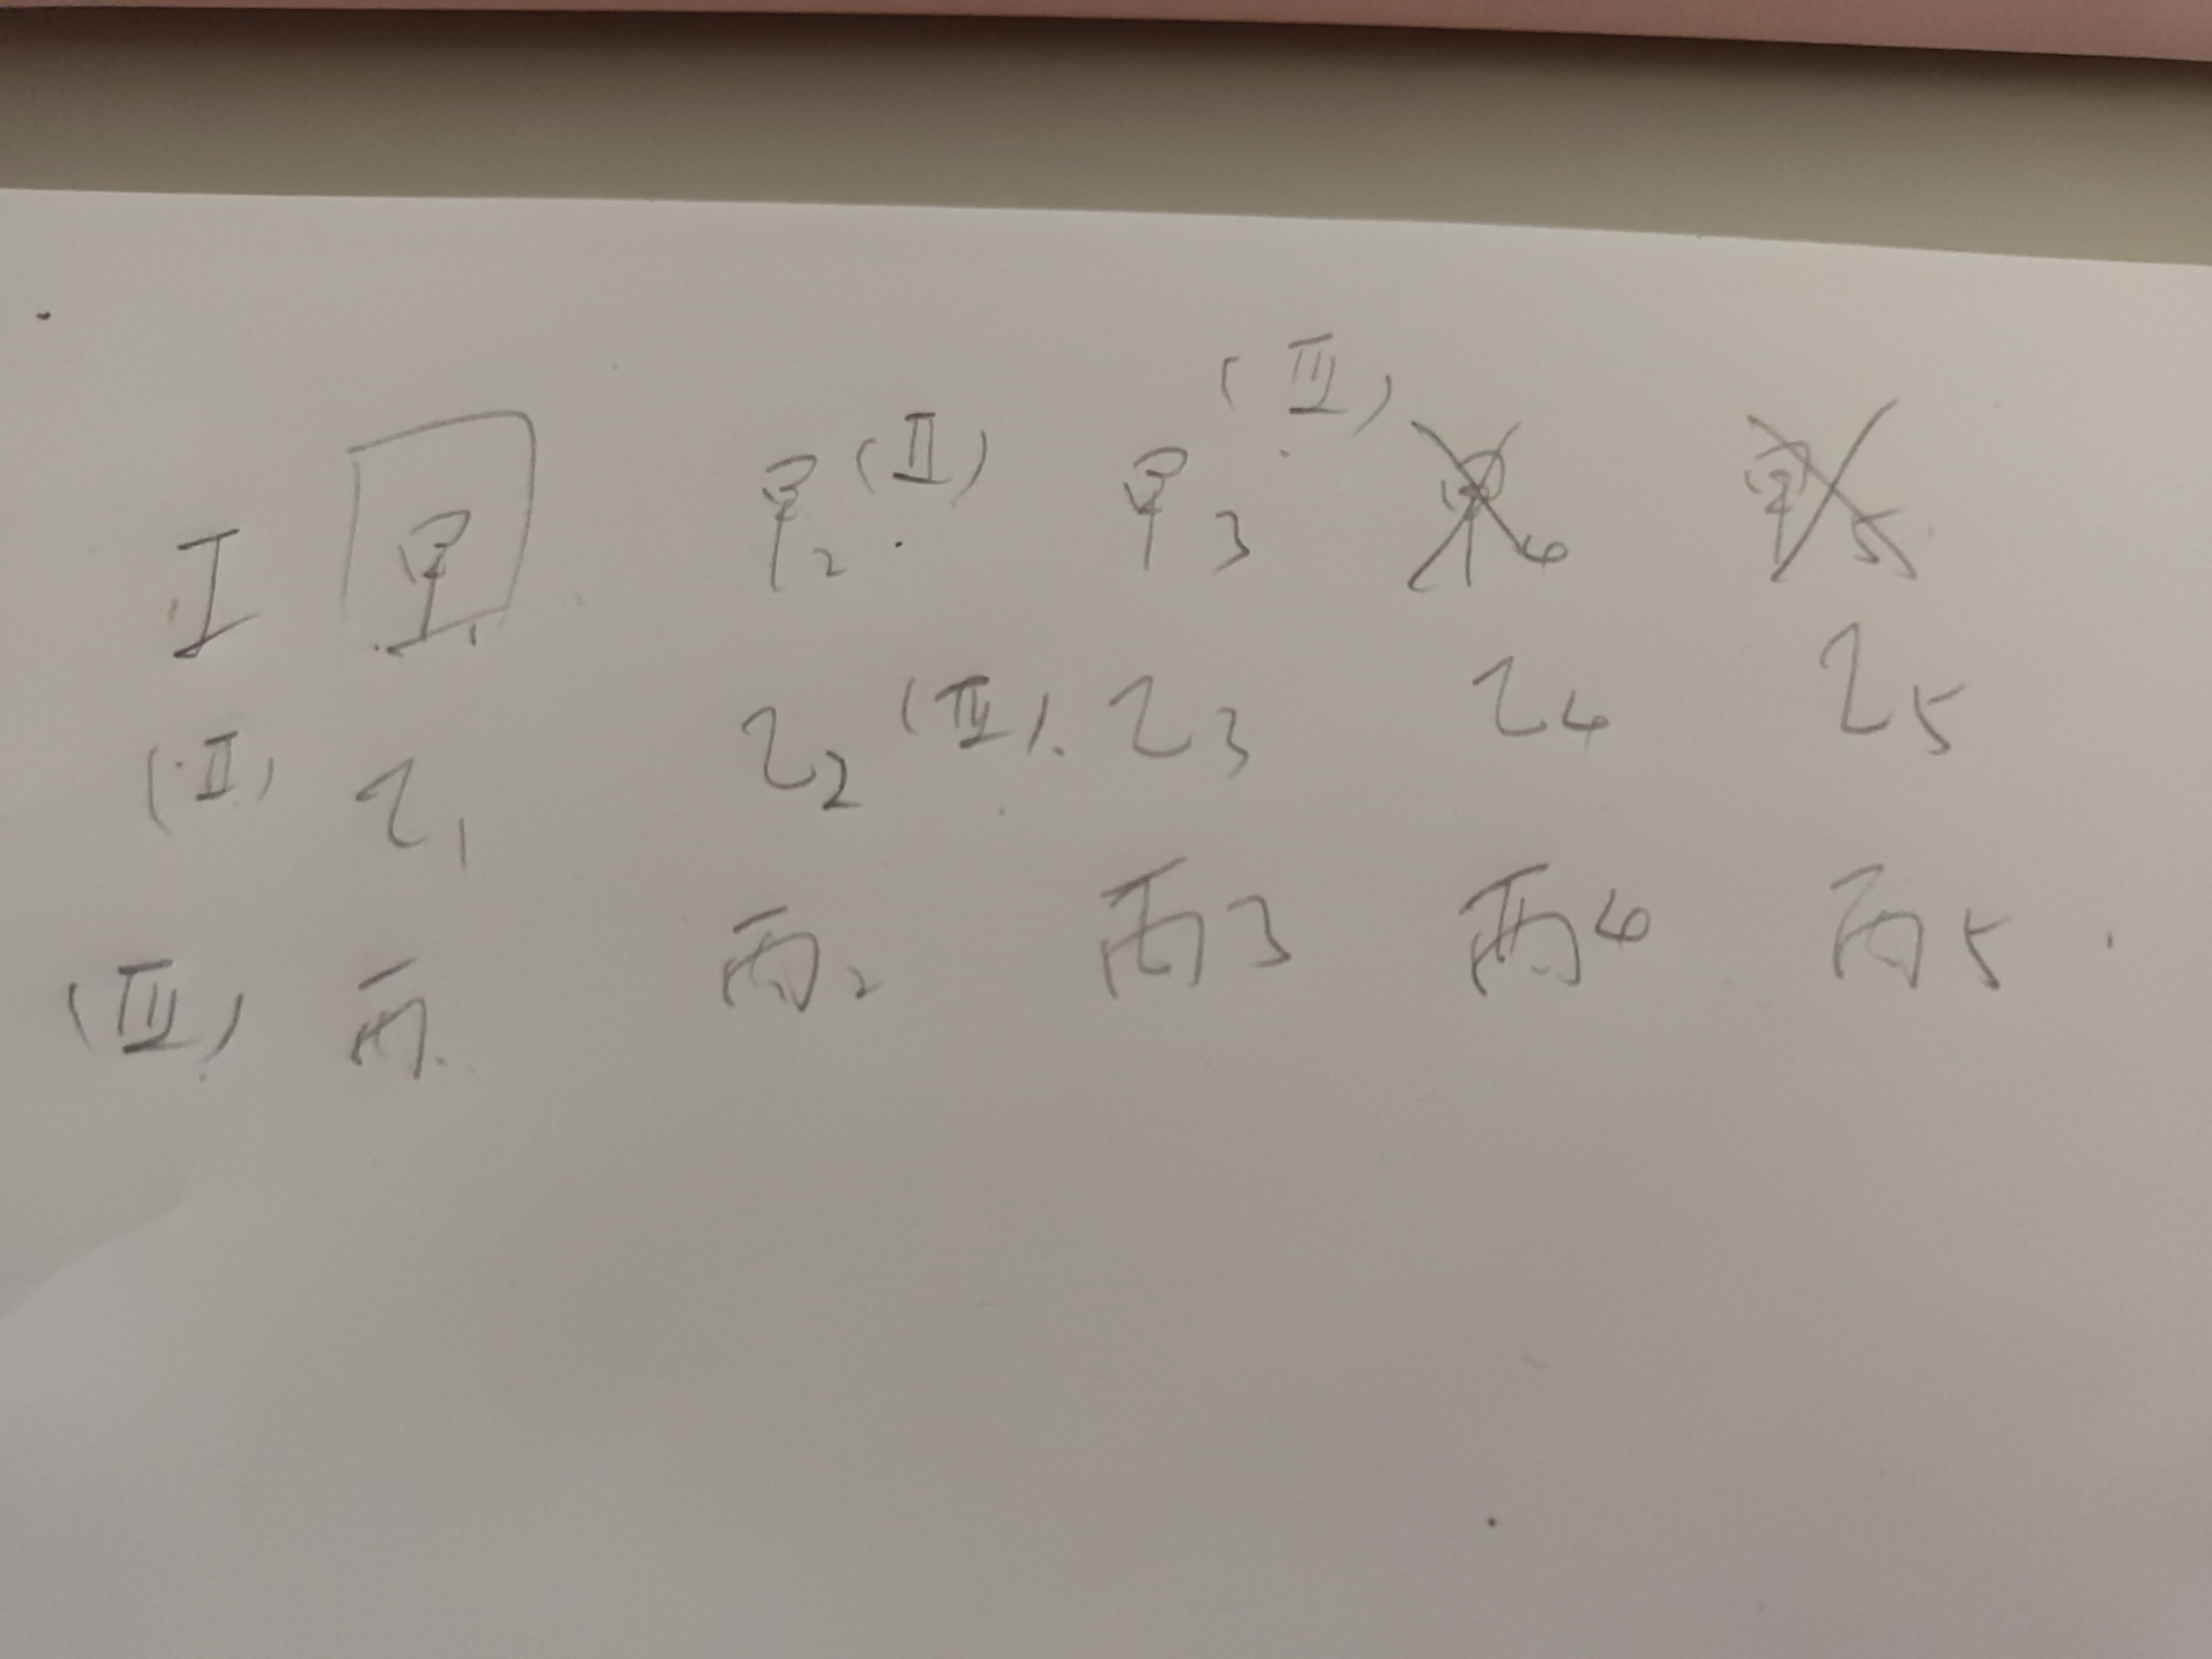 I 甲1 甲2 (II) 甲3 (III) 甲4 甲5
(II) 乙1 乙2 (III) 乙3 乙4 乙5
(III) 丙 丙2 丙3 丙4 丙5